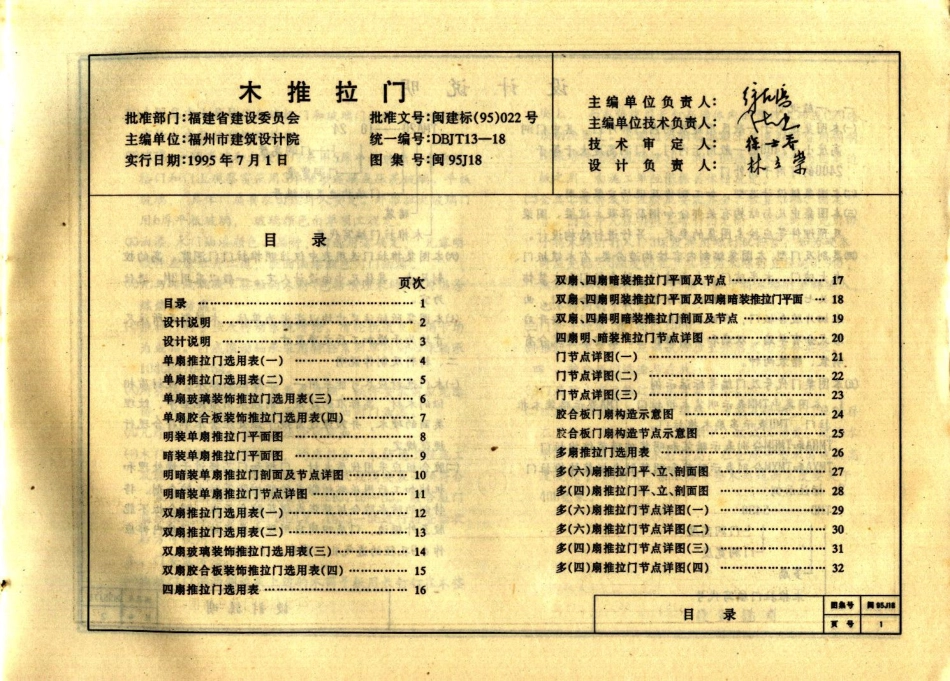 木推拉门
批准部门:福建省建设委员会
主编单位:福州市建筑设计院
实行日期:1995年7月1日
批准文号:闽建标(95)022号
统一编号:DBJT13—18
图集号:闽95J18
主编单位负责人:
主编单位技术负责人:
技术审定人:
设计负责人:
目录
页次
目录 1
设计说明 2
设计说明 3
单扇推拉门选用表(一) 4
单扇推拉门选用表(二) 5
单扇玻璃装饰推拉门选用表(三) 6
单扇胶合板装饰推拉门选用表(四) 7
明装单扇推拉门平面图 8
暗装单扇推拉门平面图 9
明暗装单扇推拉门剖面及节点详图 10
明暗装单扇推拉门节点详图 11
双扇推拉门选用表(一) 12
双扇推拉门选用表(二) 13
双扇玻璃装饰推拉门选用表(三) 14
双扇胶合板装饰推拉门选用表(四) 15
四扇推拉门选用表 16
双扇、四扇暗装推拉门平面及节点 17
双扇、四扇明装推拉门平面及四扇暗装推拉门平面 18
双扇、四扇明暗装推拉门剖面及节点 19
四扇明、暗装推拉门节点详图 20
门节点详图(一) 21
门节点详图(二) 22
门节点详图(三) 23
胶合板门扇构造示意图 24
胶合板门扇构造节点示意图 25
多扇推拉门选用表 26
多(六)扇推拉门平、立、剖面图 27
多(四)扇推拉门平、立、剖面图 28
多(六)扇推拉门节点详图(一) 29
多(六)扇推拉门节点详图(二) 30
多(四)扇推拉门节点详图(三) 31
多(四)扇推拉门节点详图(四) 32
目录
图集号 闽95J18
页号 1